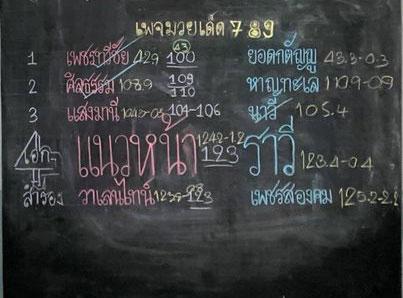 เพจมวยเด็ด 789
1 เพชรทวีชัย 100 ยอดกตัญญู 43.3-0.3
2 ศีลธรรม 108.9 109 110 หาญทะเล 109-09
3 แสงมานี 104-106 นาวี 105.4
เอก แนวหน้า 124.2-1.2 123 ราวี 123.4-0.4
สำรอง วาเลนไทน์ 123 เพชรสองคม 125.2-2.2